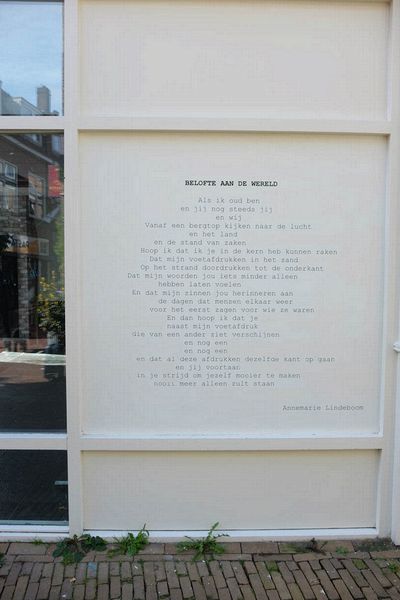 BELOFTE AAN DE WERELD
Als ik oud ben
en jij nog steeds jij
en wij
Vanaf een bergtop kijken naar de lucht
en het land
en de stand van zaken
Hoop ik dat ik je in de kern heb kunnen raken
Dat mijn voetafdrukken in het zand
Op het strand doordrukken tot de onderkant
Dat mijn woorden jou iets minder alleen
hebben laten voelen
En dat mijn zinnen jou herinneren aan
de dagen dat mensen elkaar weer
voor het eerst zagen voor wie ze waren
En dan hoop ik dat je
naast mijn voetafdruk
die van een ander ziet verschijnen
en nog een
en nog een
en dat al deze afdrukken dezelfde kant op gaan
en jij voortaan
in je strijd om jezelf mooier te maken
nooit meer alleen zult staan
Annemarie Lindeboom